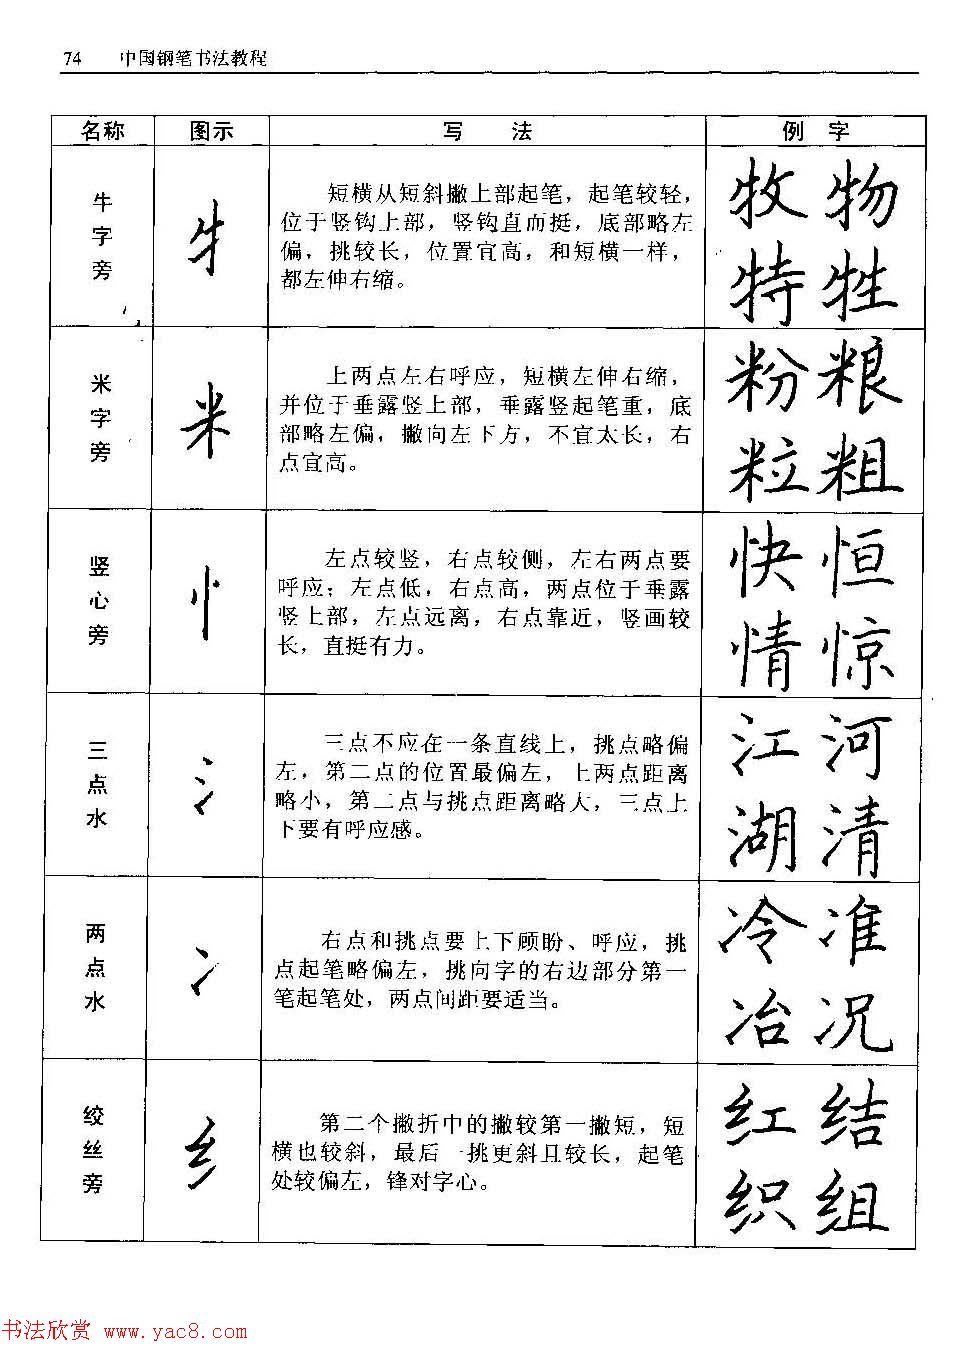 74 中国钢笔书法教程
名称 图示 写 法 例 字
牛字旁
牜
短横从短斜撇上部起笔，起笔较轻，
位于竖钩上部，竖钩直而挺，底部略左
偏，挑较长，位置宜高，和短横一样，
都左伸右缩。
牧 物
特 牲
米字旁
米
上两点左右呼应，短横左伸右缩，
并位于垂露竖上部，垂露竖起笔重，底
部略左偏，撇向左下方，不宜太长，右
点宜高。
粉 粮
粒 粗
竖心旁
忄
左点较竖，右点较侧，左右两点要
呼应；左点低，右点高，两点位于垂露
竖上部，左点远离，右点靠近，竖画较
长，直挺有力。
快 恒
情 惊
三点水
氵
三点不应在一条直线上，挑点略偏
左，第二点的位置最偏左，上两点距离
略小，第二点与挑点距离略大，三点上
下要有呼应感。
江 河
湖 清
两点水
冫
右点和挑点要上下顾盼、呼应，挑
点起笔略偏左，挑向字的右边部分第一
笔起笔处，两点间距要适当。
冷 准
冶 况
绞丝旁
纟
第二个撇折中的撇较第一撇短，短
横也较斜，最后一挑更斜且较长，起笔
处较偏左，锋对字心。
红 结
织 组
书法欣赏 www.yac8.com